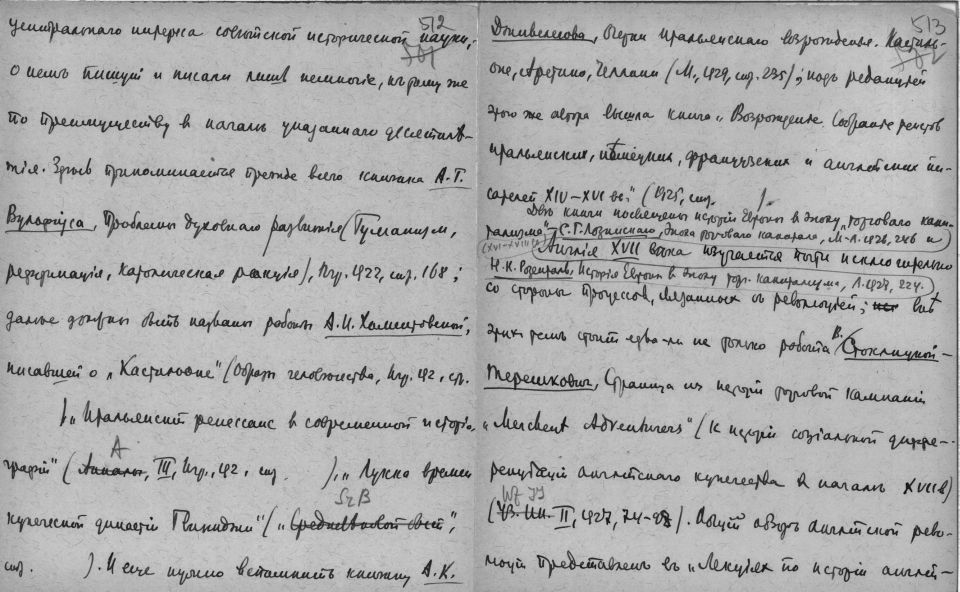 512
центральнаго интереса советской исторической науки;
о немъ пишутъ и писали лишь немногіе, къ тому же
по преимуществу в началѣ указаннаго десятилѣ-
тія. Здѣсь припоминается прежде всего книжка А.Г.
Вульфіуса, Проблемы духовнаго развитія (Гуманизм,
реформація, католическая реакція), Птр. 1922, стр. 168;
далѣе должны быть названы работы А.И. Хоментовской,
писавшей о „Кастильоне" (Образ человѣчества, Птр. 192 , стр.
), „Итальянскій ренессанс в современной исторіо-
графіи" (Анналы, А III, Птр., 192 , стр. ), „Лукка времен
купеческой династіи Гвиниджи" („Средневѣковой быт", СрВ
стр. ). И еще нужно вспомнить книжку А.К.
513
Дживелегова, Очерки итальянскаго возрожденія. Кастиль-
оне, Аретино, Челлини (М., 1929, стр. 235); подъ редакціей
этого же автора вышла книга „Возрожденіе. Собраніе текстов
итальянских, нѣмецких, французских и англійских пи-
сателей XIV–XVI вв." (1925, стр. ).
Двѣ книги посвящены исторіи Европы в эпоху „торговаго капи-
тализма" – С.Г. Лозинскаго, Эпоха торговаго капитала, М-Л. 1926, 246 и
(XVI–XVIII в)
Н.К. Розенталь, Исторія Европы в эпоху торг. капитализма, Л. 1927, 224.
Англія XVII вѣка изучается почти исключительно
со стороны процессов, связанных съ революціей; внѣ
этих тем стоит едва-ли не только работа В. Стоклицкой-
Терешкович, Страница из исторіи торговой кампаніи
„Merchent Adventurers" (К исторіи соціальной диффе-
ренціаціи англійскаго купечества в началѣ XVII в)
( II, 1927, 74–98). Общій обзоръ англійской рево-
люціи представленъ въ „Лекціях по исторіи англій-